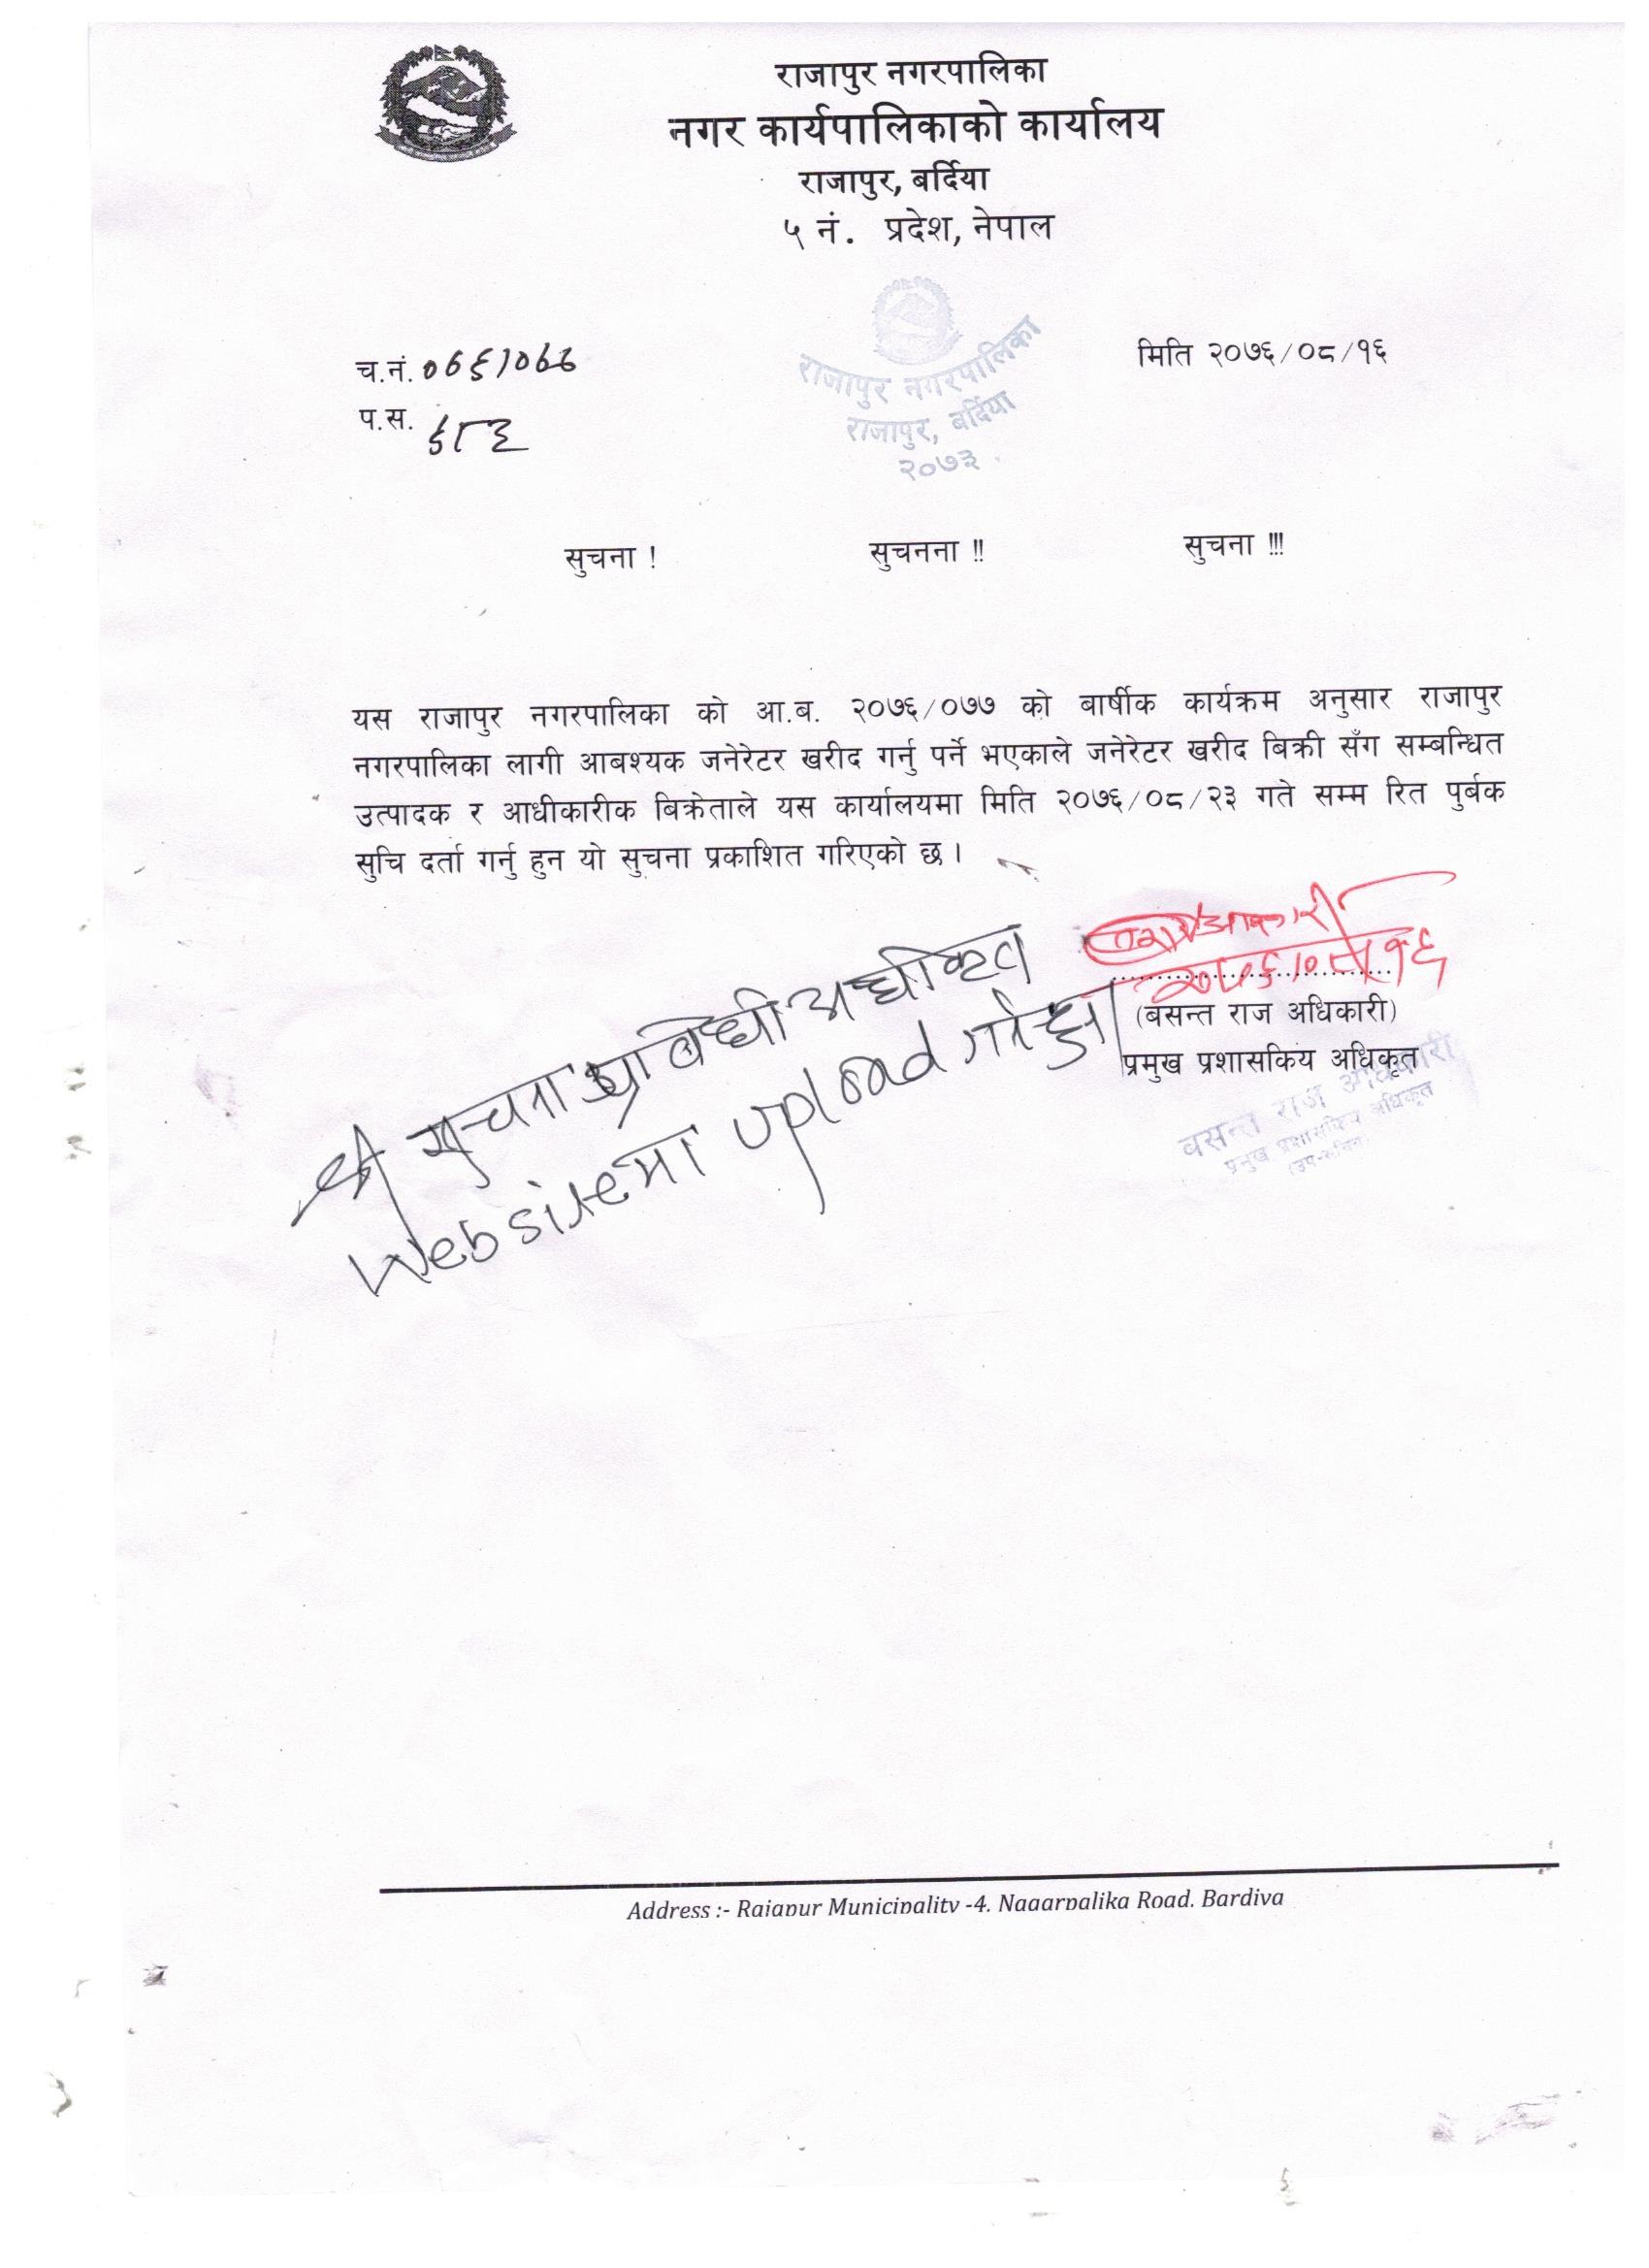 राजापुर नगरपालिका
नगर कार्यपालिकाको कार्यालय
राजापुर, बर्दिया
५ नं. प्रदेश, नेपाल
राजापुर नगरपालिका
राजापुर, बर्दिया
२०७३
च.नं. ०७६/०७७
मिति २०७६/०८/१६
प.स. ६८६
सुचना ! सुचनना !! सुचना !!!
यस राजापुर नगरपालिका को आ.ब. २०७६/०७७ को बार्षीक कार्यक्रम अनुसार राजापुर
नगरपालिका लागी आबश्यक जनेरेटर खरीद गर्नु पर्ने भएकाले जनेरेटर खरीद बिक्री सँग सम्बन्धित
उत्पादक र आधीकारीक बिक्रेताले यस कार्यालयमा मिति २०७६/०८/२३ गते सम्म रित पुर्बक
सुचि दर्ता गर्नु हुन यो सुचना प्रकाशित गरिएको छ ।
२०७६/०८/१६
(बसन्त राज अधिकारी)
प्रमुख प्रशासकिय अधिकृत
वसन्त राज अधिकारी
प्रमुख प्रशासकिय अधिकृत
(उप-सचिव)
श्री सुचना प्रबिधी अधीकृत
Website मा upload गर्ने
Address :- Rajapur Municipality -4, Nagarpalika Road, Bardiya